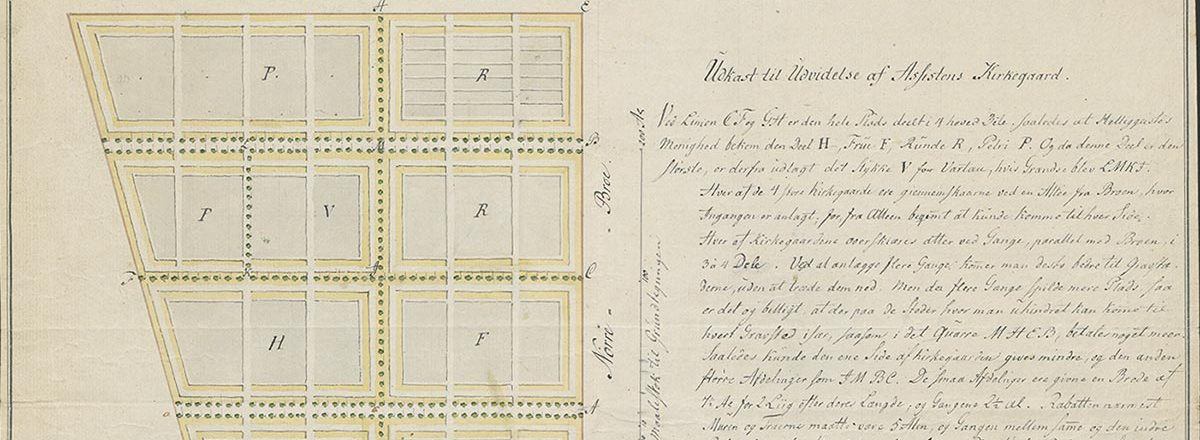 H E
P. R
L M B
F V R
F K J C
H F
G A
Nörre - Broe -
200 Al
100
Maalestok til Grundtegningen
Udkast til Udvidelse af Assistens Kirkegaard.
Ved Linien C F og G H er den hele Plads deelt i 4 hoved Dele, saaledes at Helliggeistes
Menighed bekom den Deel H, Frue F, Runde R, Petri P. Og da denne Deel er den
störste, er derfra udlagt det Stykke V for Vartau, hvis Grændse blev L M K J.
Hver af de 4 store Kirkegaarde ere giennemskaarne ved en Allee fra Broen, hvor
Indgangen er anlagt, for fra Alleen beqvemt at kunde komme til hver Side.
Hver af Kirkegaardene overskiæres atter ved Gange, parallel med Broen, i
3 à 4 Dele. Ved at anlægge flere Gange, kommer man desto bedre til Gravstæ-
derne, uden at træde dem ned. Men da flere Gange spilde mere Plads, saa
er det og billigt, at der paa de Steder hvor man uhindret kan komme til
hvert Gravsted især, saasom i det Quarré M H E B, betales noget meer.
Saaledes kunde den ene Side af kirkegaarden gives mindre, og den anden
flere Afdelinger som J M B C. De smaa Afdelinger ere givne en Brede af
Al for 2 Liig efter deres Længde, og Gangene 2½ Al. Rabatten nærmest
Muren og Træerne maatte være 5 Alen, og Gangen mellem samme og den indre